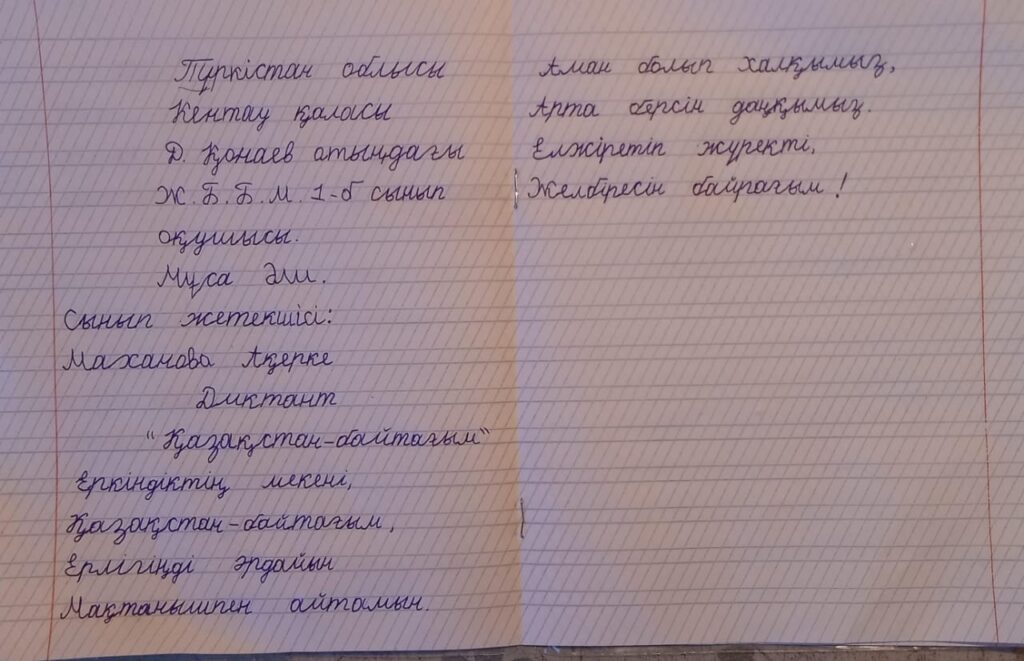 Түркістан облысы
Кентау қаласы
Д. Қонаев атыңдағы
Ж.Б.Б.М. 1-б сынып
оқушысы.
Мұса Әли.
Сынып жетекшісі:
Маханова Ақерке
Диктант
"Қазақстан-байтағым"
Еркіндіктің мекені,
Қазақстан-байтағым,
Ерлігіңді әрдайын
Мақтанышпен айтамын.
Аман болып халқымыз,
Арта берсін даңқымыз.
Елжіретіп жүректі,
Желбіресін байрағым!